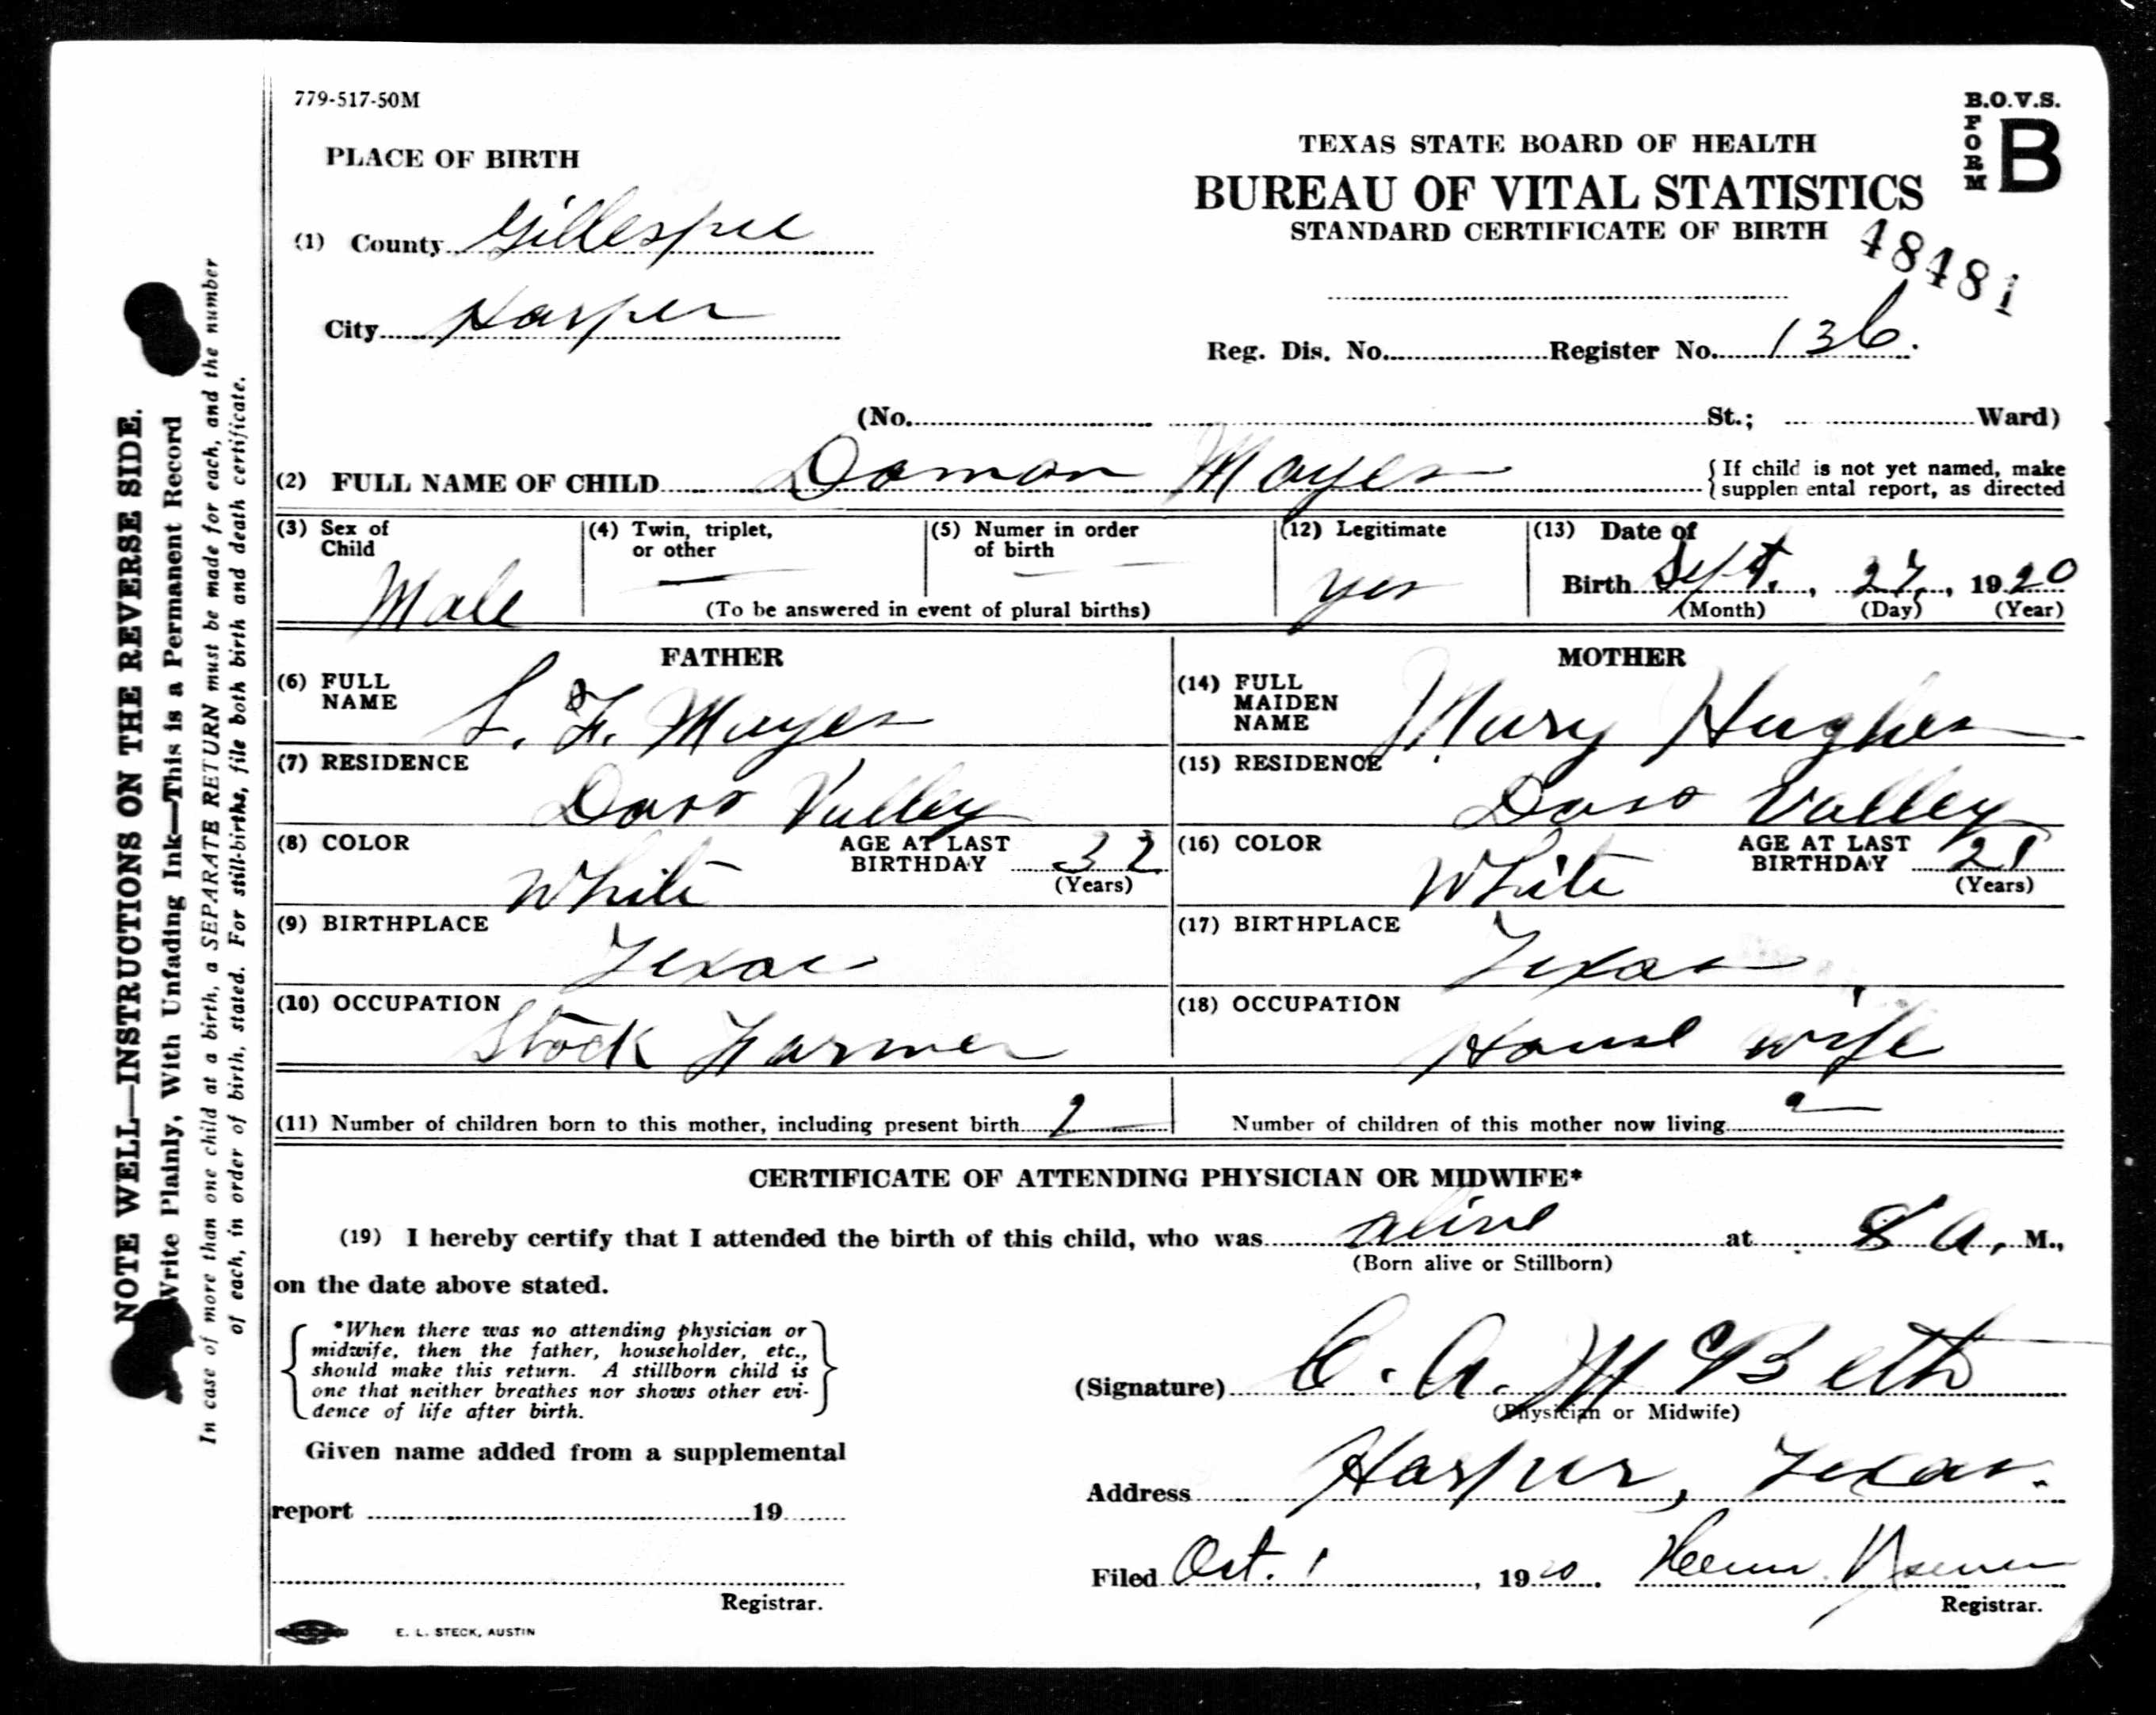 779-517-50M
B.O.V.S.
FORM B
PLACE OF BIRTH
TEXAS STATE BOARD OF HEALTH
BUREAU OF VITAL STATISTICS
STANDARD CERTIFICATE OF BIRTH
48481
(1) County Gillespie
City Harper
Reg. Dis. No. Register No. 136.
(No. St.; Ward)
(2) FULL NAME OF CHILD Damon Mayes
{If child is not yet named, make
supplemental report, as directed
(3) Sex of Child Male
(4) Twin, triplet, or other —
(5) Numer in order of birth —
(To be answered in event of plural births)
(12) Legitimate yes
(13) Date of
Birth Sept., 27, 1920
(Month) (Day) (Year)
FATHER
(6) FULL NAME L. F. Mayes
(7) RESIDENCE Doss Valley
(8) COLOR White AGE AT LAST BIRTHDAY 32 (Years)
(9) BIRTHPLACE Texas
(10) OCCUPATION Stock Farmer
MOTHER
(14) FULL MAIDEN NAME Mary Hughes
(15) RESIDENCE Doss Valley
(16) COLOR White AGE AT LAST BIRTHDAY 21 (Years)
(17) BIRTHPLACE Texas
(18) OCCUPATION House wife
(11) Number of children born to this mother, including present birth 2
Number of children of this mother now living 2
CERTIFICATE OF ATTENDING PHYSICIAN OR MIDWIFE*
(19) I hereby certify that I attended the birth of this child, who was alive at 8 A. M.,
(Born alive or Stillborn)
on the date above stated.
*When there was no attending physician or
midwife, then the father, householder, etc.,
should make this return. A stillborn child is
one that neither breathes nor shows other evi-
dence of life after birth.
(Signature) C. A. McBeth
(Physician or Midwife)
Given name added from a supplemental
report 19
Registrar.
Address Harper, Texas.
Filed Oct. 1, 1920.
Registrar.
E. L. STECK, AUSTIN
NOTE WELL—INSTRUCTIONS ON THE REVERSE SIDE.
Write Plainly, With Unfading Ink—This is a Permanent Record
In case of more than one child at a birth, a SEPARATE RETURN must be made for each, and the number
of each, in order of birth, stated. For still-births, file both birth and death certificate.